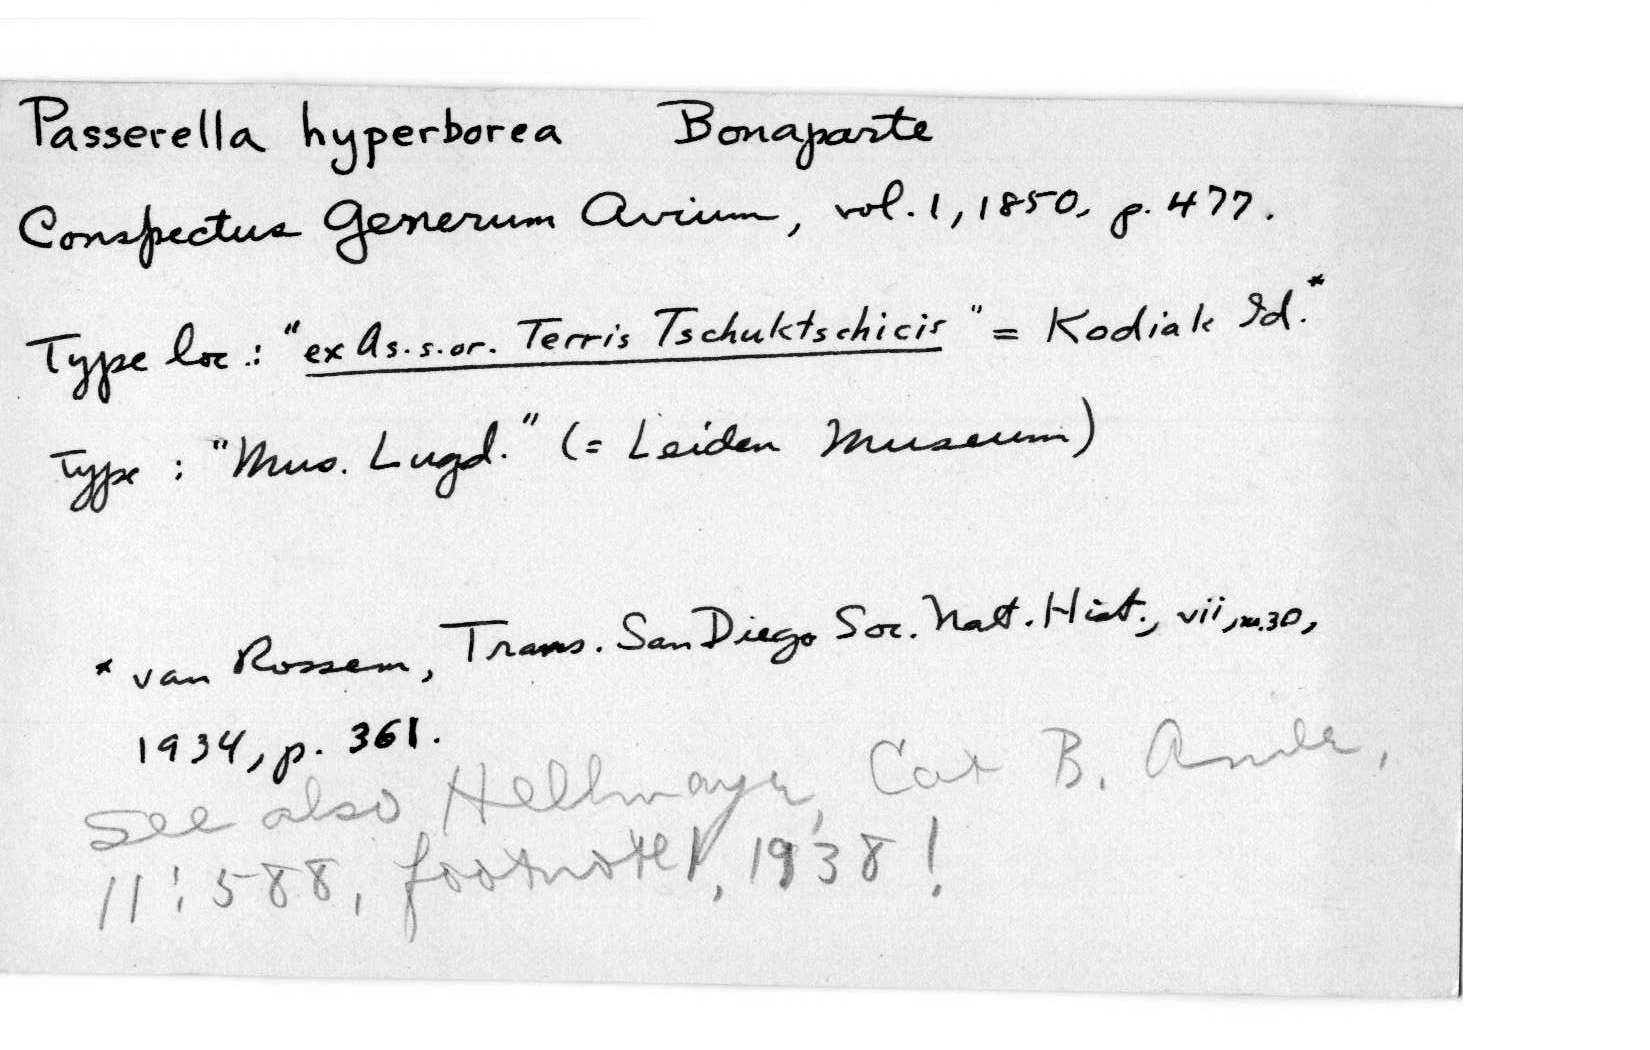 Passerella hyperborea Bonaparte
Conspectus Generum Avium, vol. 1, 1850, p. 477.
Type loc.: "ex As. s. or. Terris Tschuktschicis" = Kodiak Id.*
Type: "Mus. Lugd." (= Leiden Museum)
* van Rossem, Trans. San Diego Soc. Nat. Hist., vii, no. 30,
1934, p. 361.
See also Hellmayr, Cat B. Amer.,
11:588, footnote 1, 1938!